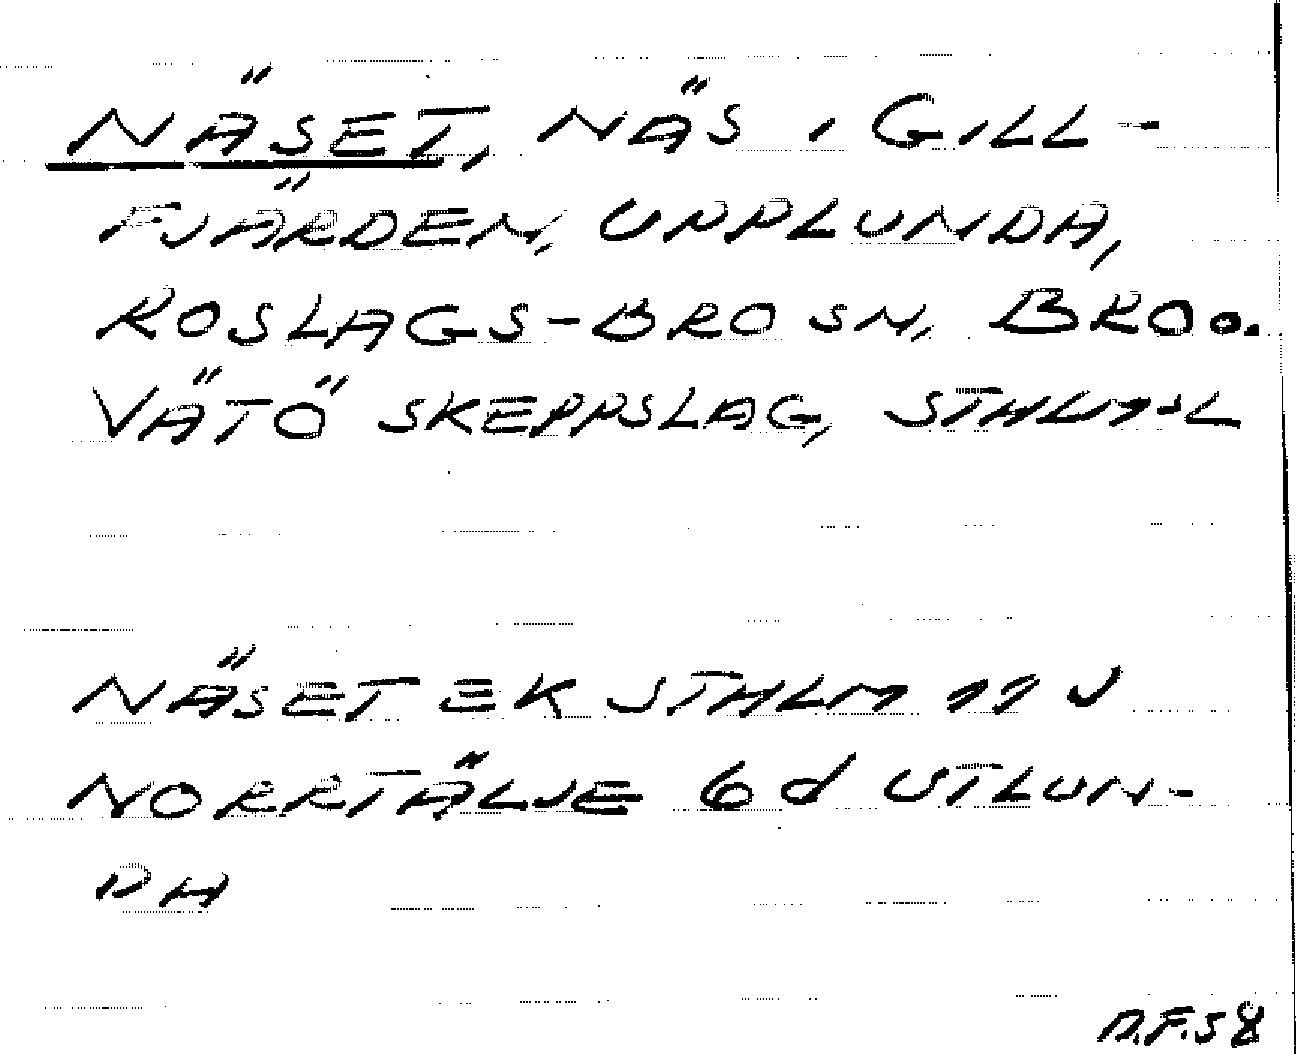 NÄSET, NÄS I GILL-
FJÄRDEN, UPPLUNDA,
ROSLAGS-BRO SN, BRO o.
VÄTÖ SKEPPSLAG, STHLMS L
NÄSET EK STHLM 11 J
NORRTÄLJE 6 d UTLUN-
DA
R.F. 58